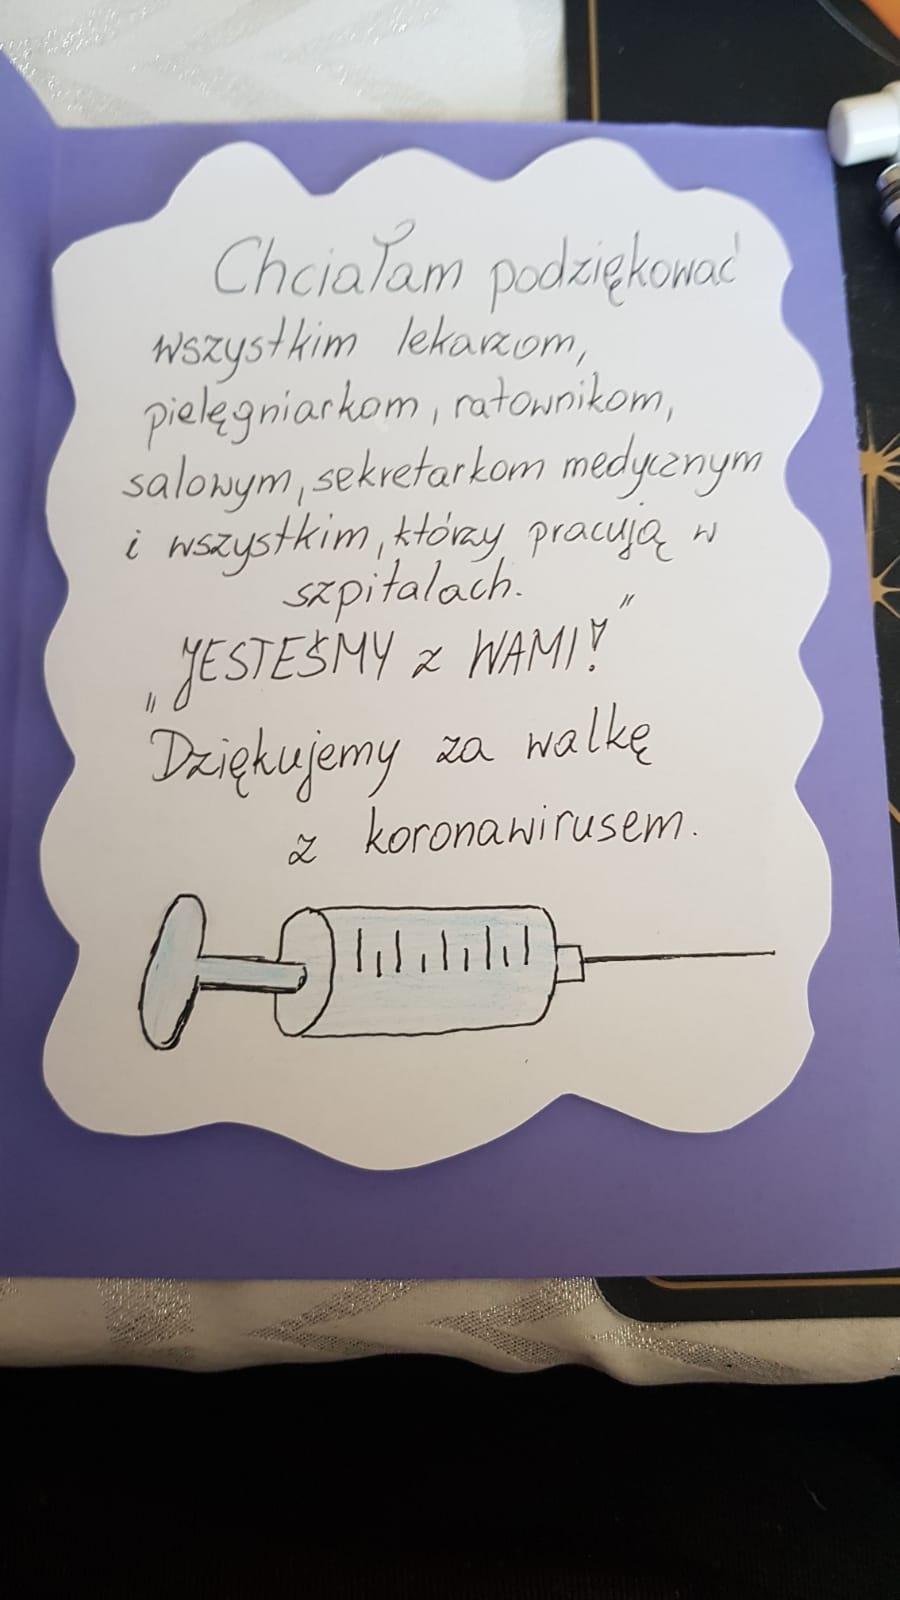 Chciałam podziękować
wszystkim lekarzom,
pielęgniarkom, ratownikom,
salowym, sekretarkom medycznym
i wszystkim, którzy pracują w
szpitalach.
„JESTEŚMY z WAMI!”
Dziękujemy za walkę
z koronawirusem.